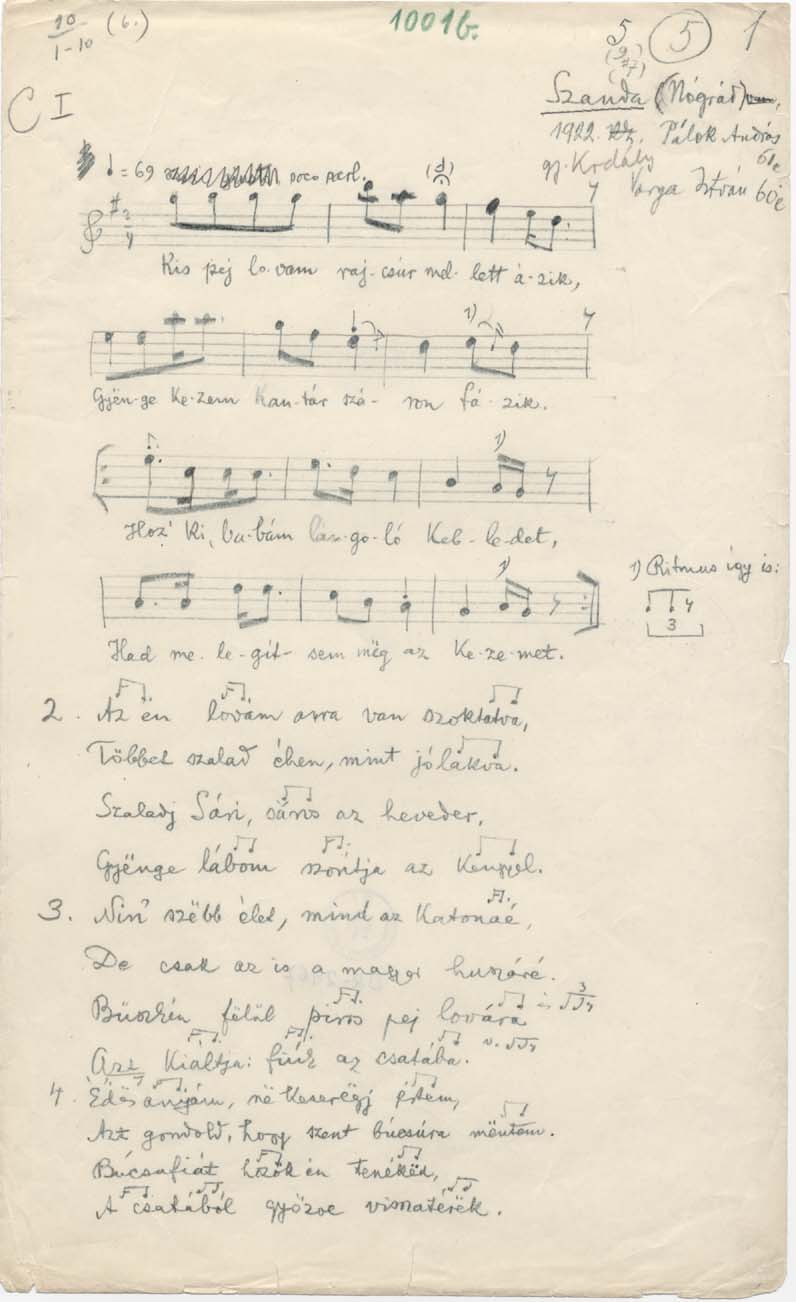 10/1-10 (6.)
1001b.
5 (5) 1
C I
Szanda (Nógrád)
1922. Pálok András 61é
gy. Kodály Varga István 60é
♩ = 69 poco parl.
Kis pej lo-vam raj-csúr mel-lett á-zik,
1)
Gyën-ge ke-zem kan-tár szá-ron fá-zik.
1)
Hoz' ki, ba-bám lán-go-ló keb-le-det,
1)
1) Ritmus így is:
3
Had me-le-gít-sem mëg az ke-ze-met.
2. Az én lovam arra van szoktatva,
Többet szalad éhen, mint jólakva.
Szaladj Sári, sáros az heveder,
Gyënge lábom szorítja az kengyel.
3. Nin' szëbb élet, mind az katonáé,
De csak az is a magyar huszáré.
Büszkén fëlül piros pej lovára
Azt kiáltja: fiúk az csatába.
4. Édës anyám, në keserëgj értem,
Azt gondold, hogy szent búcsúra mëntem.
Búcsufiát hozok én tenékëd,
A csatából győzve visszatérëk.